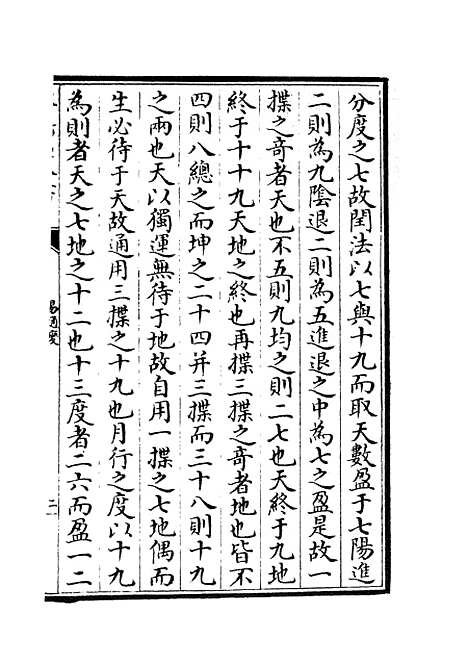 分度之七故閏法以七與十九而取天數盈于七陽進
二則為九陰退二則為五進退之中為七之盈是故一
揲之奇者天也不五則九均之則二七也天終于九地
終于十十九天地之終也再揲三揲之奇者地也皆不
四則八總之而坤之二十四并三揲而三十八則十九
之兩也天以獨運無待于地故自用一揲之七地偶而
生必待于天故通用三揲之十九也月行之度以十九
為則者天之七地之十二也十三度者二六而盈一二
易通變
二